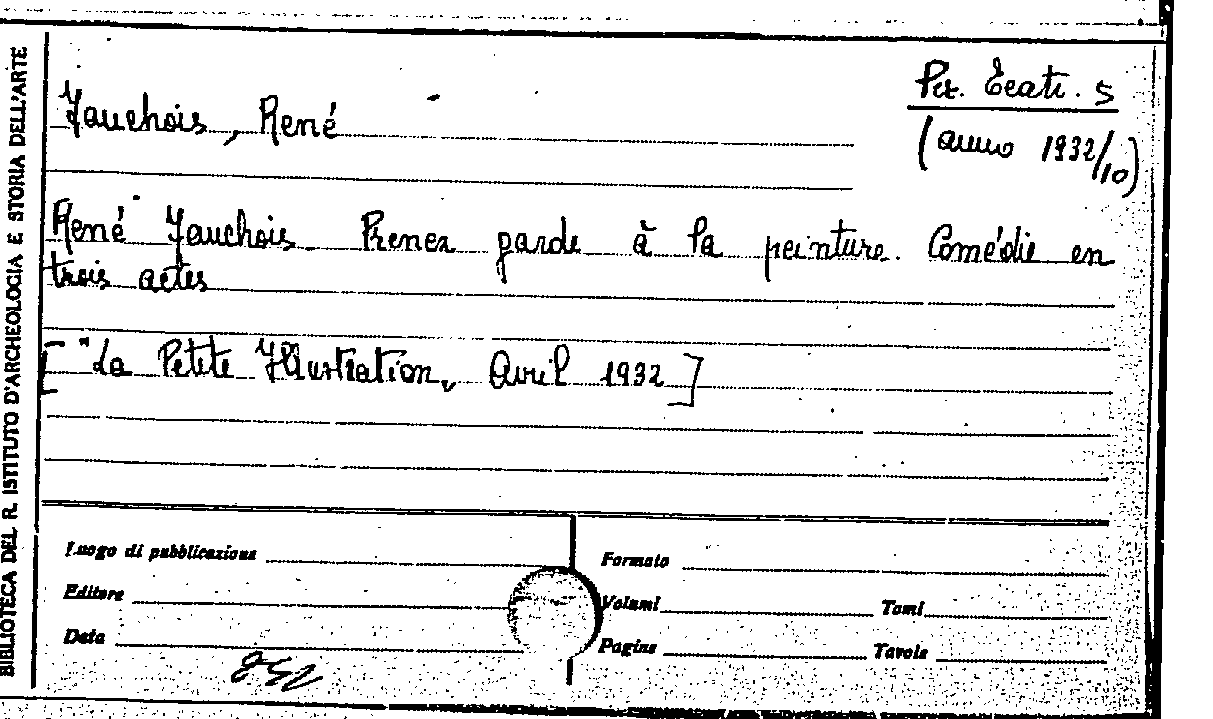 BIBLIOTECA DEL R. ISTITUTO D'ARCHEOLOGIA E STORIA DELL'ARTE
Per. Teatr. 5
(anno 1932/10)
Fauchois, René
René Fauchois. Prenez garde à la peinture. Comédie en
trois actes
["La Petite Illustration„ Avril 1932]
Luogo di pubblicazione
Formato
Editore
Volumi
Tomi
Data
Pagine
Tavole